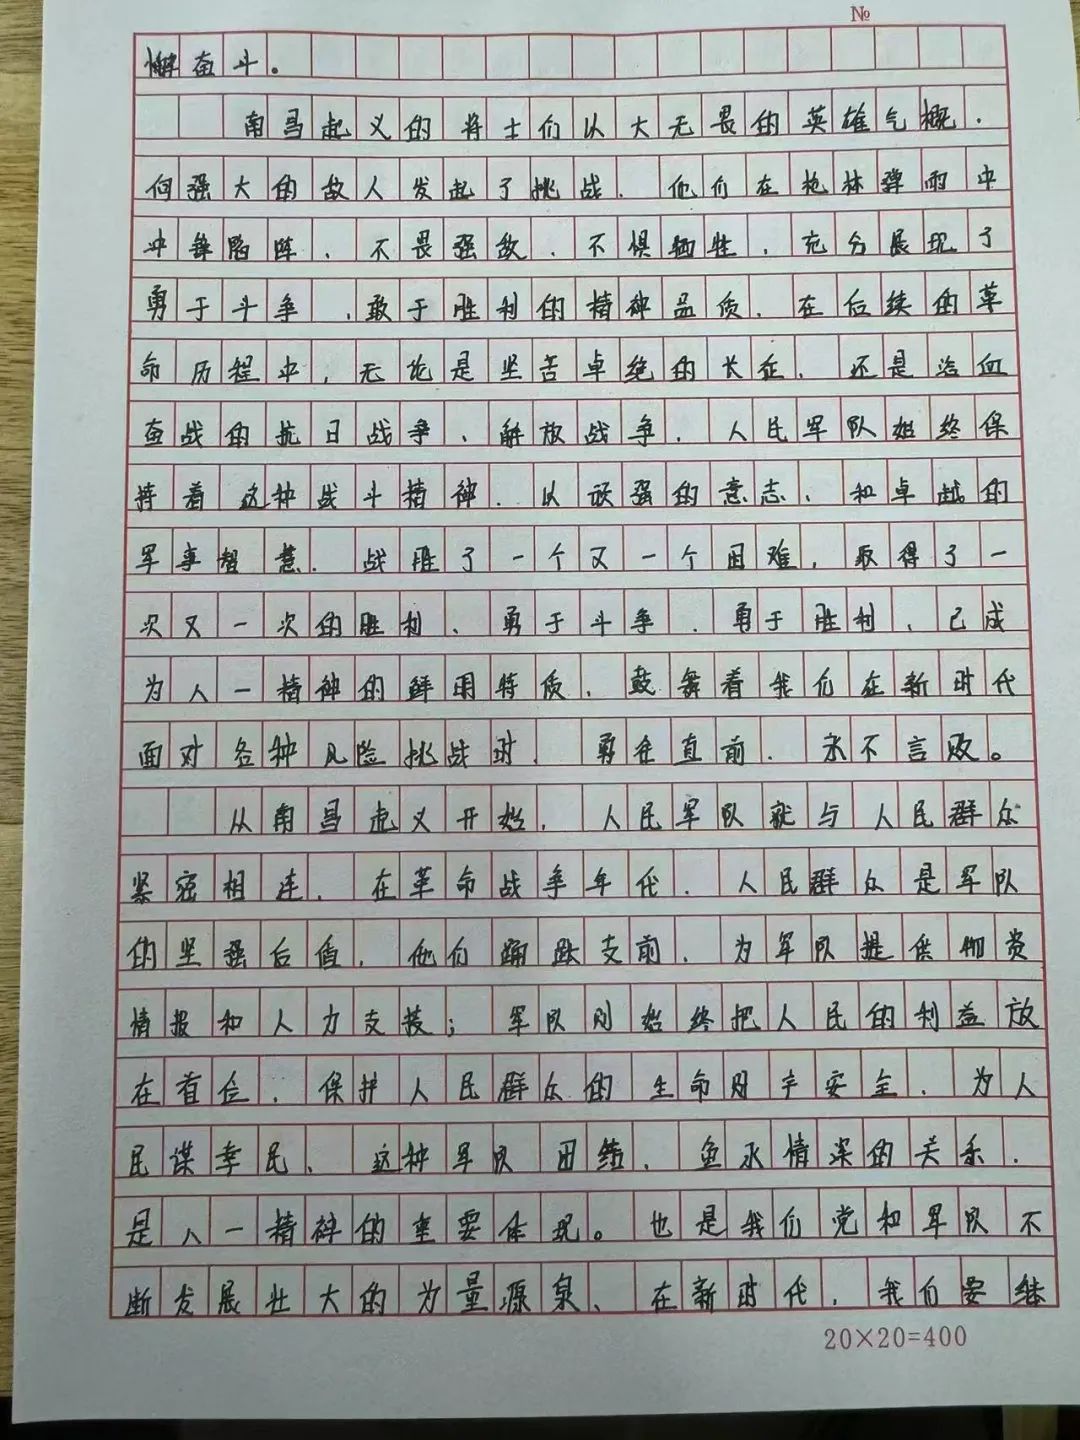 №
懈奋斗。
南昌起义的将士们以大无畏的英雄气概，
向强大的敌人发起了挑战，他们在枪林弹雨中
冲锋陷阵，不畏强敌，不惧牺牲，充分展现了
勇于斗争，敢于胜利的精神品质，在后续的革
命历程中，无论是坚苦卓绝的长征，还是浴血
奋战的抗日战争、解放战争，人民军队始终保
持着这种战斗精神，以顽强的意志，和卓越的
军事智慧，战胜了一个又一个困难，取得了一
次又一次的胜利、勇于斗争，勇于胜利，已成
为八一精神的鲜明特质，鼓舞着我们在新时代
面对各种风险挑战时，勇往直前，永不言败。
从南昌起义开始，人民军队就与人民群众
紧密相连，在革命战争年代，人民群众是军队
的坚强后盾，他们踊跃支前，为军队提供物资
情报和人力支援；军队则始终把人民的利益放
在首位，保护人民群众的生命财产安全，为人
民谋幸民、这种军队团结，鱼水情深的关系，
是八一精神的重要体现。也是我们党和军队不
断发展壮大的力量源泉、在新时代，我们要继
20×20=400